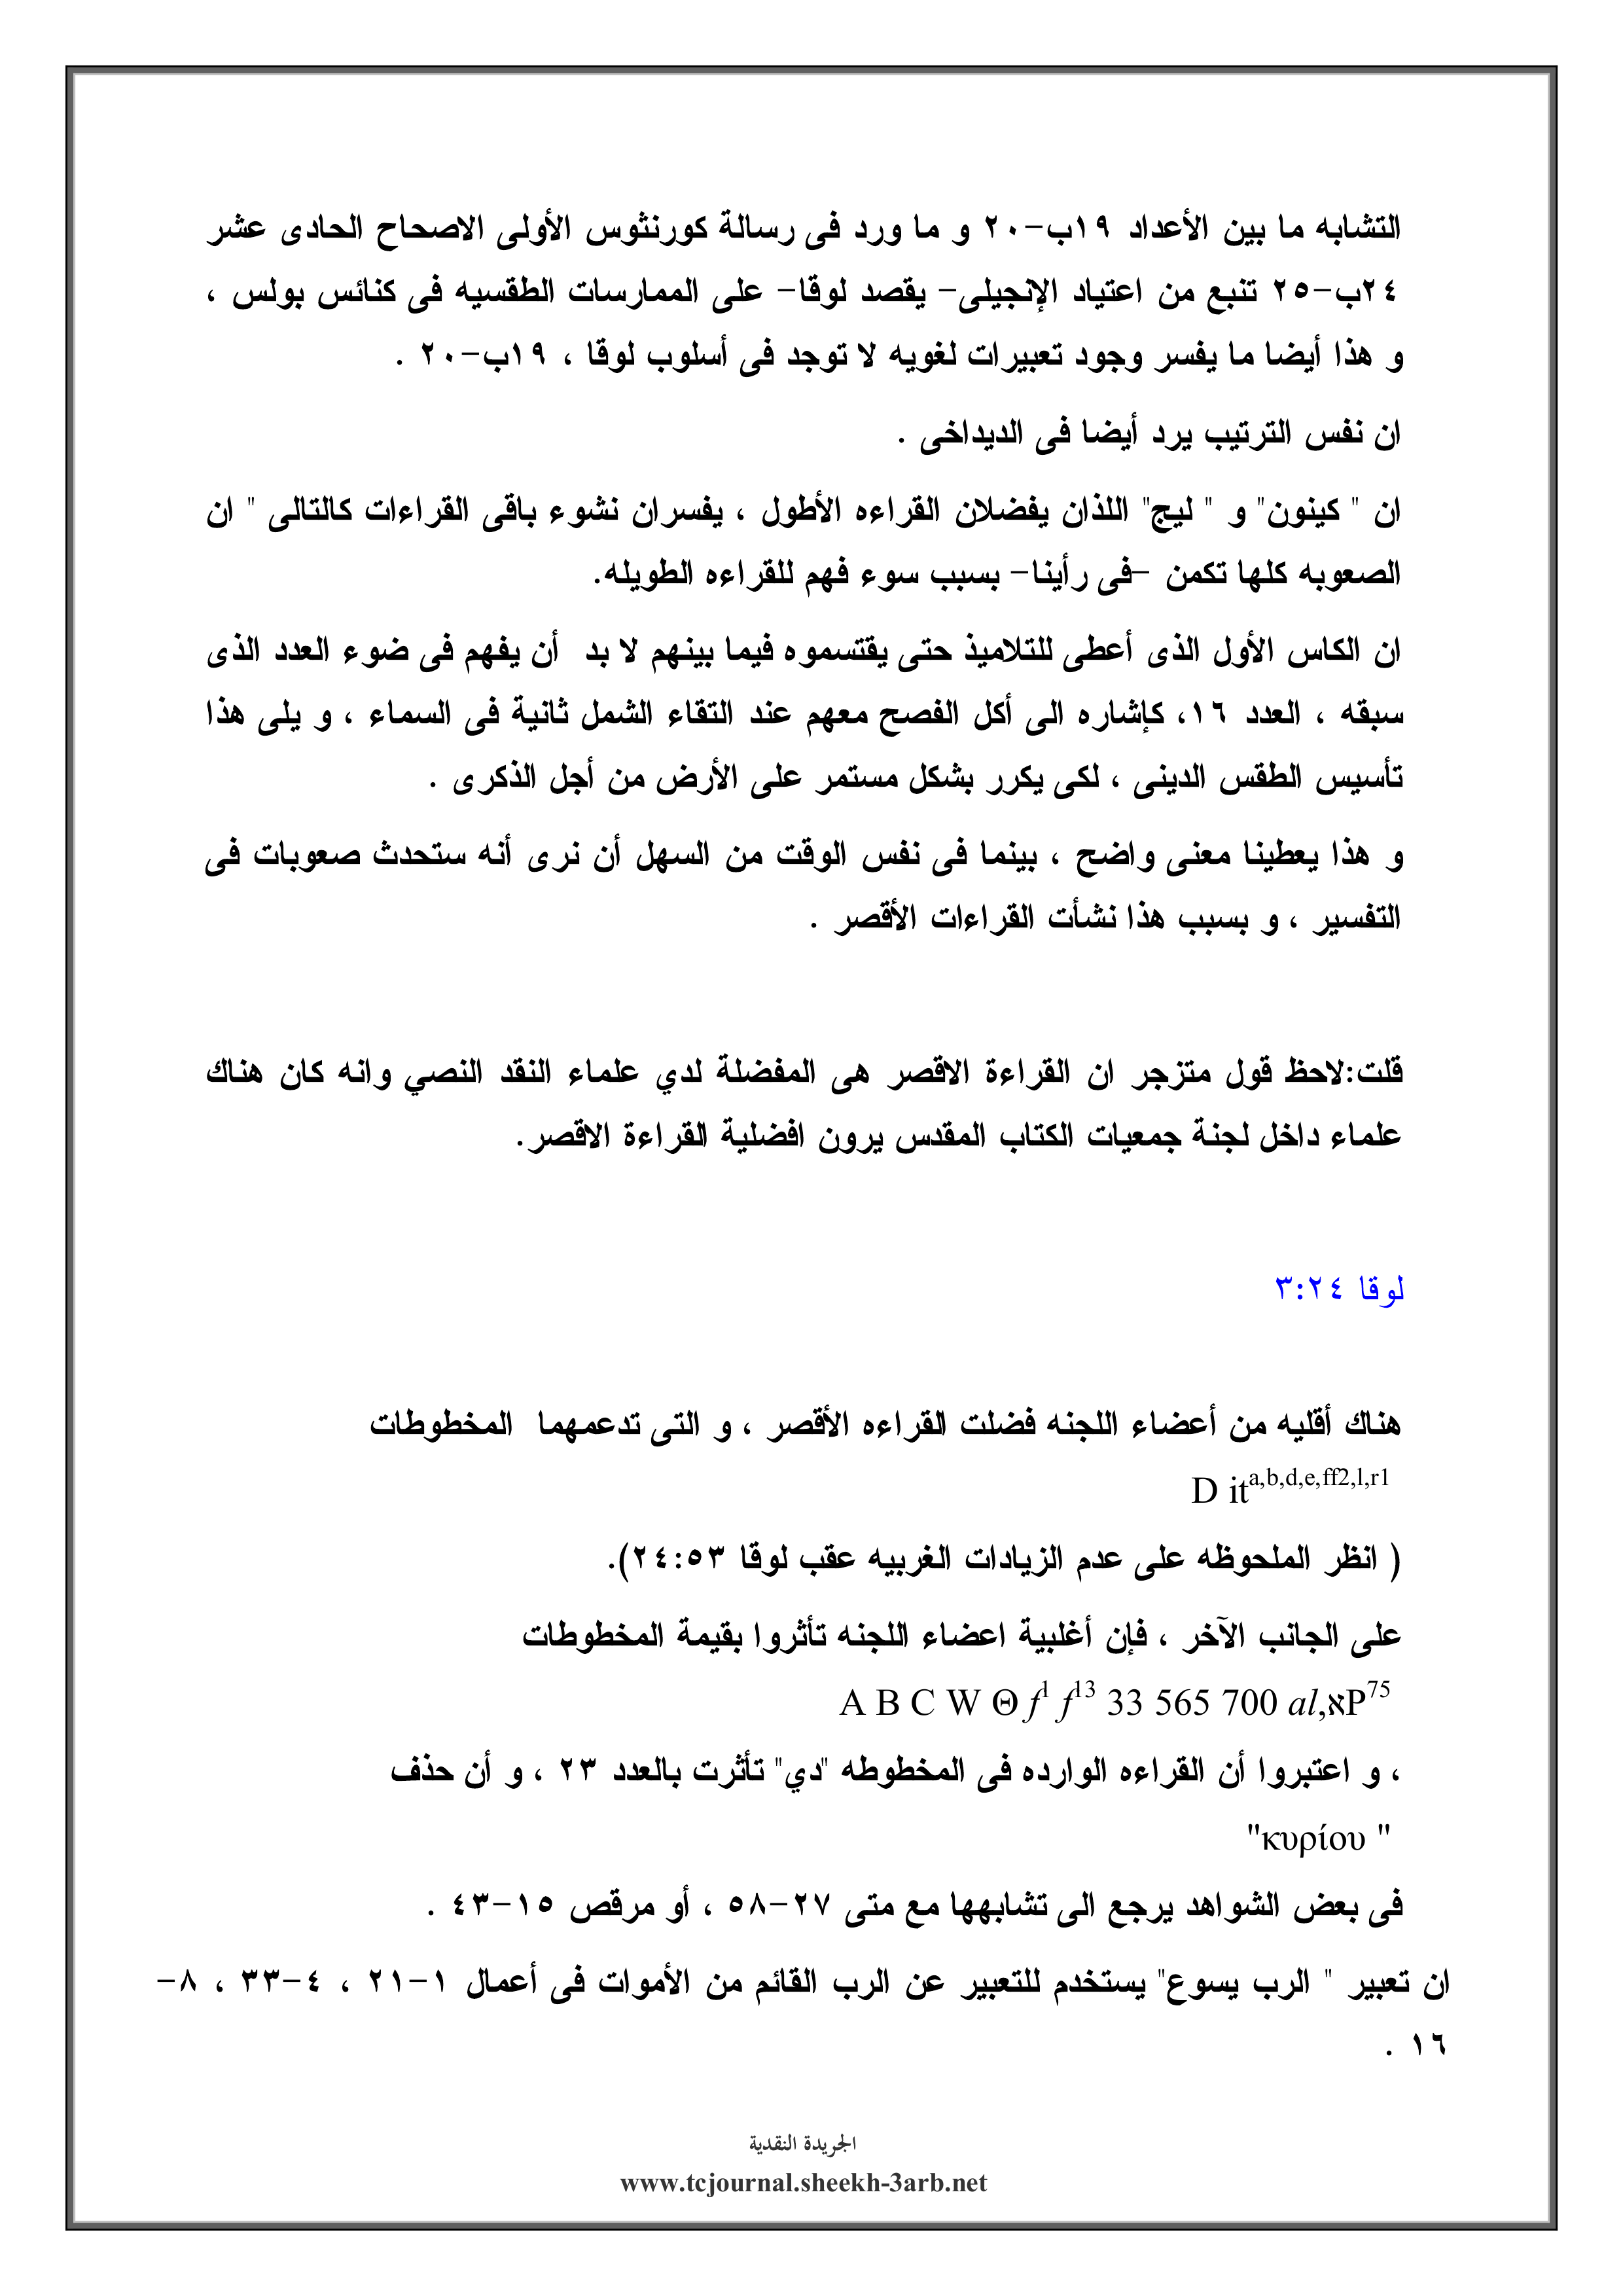 التشابه ما بين الأعداد ١٩ب-٢٠ و ما ورد فى رسالة كورنثوس الأولى الاصحاح الحادى عشر
٢٤ب-٢٥ تنبع من اعتياد الإنجيلى- يقصد لوقا- على الممارسات الطقسيه فى كنائس بولس ،
و هذا أيضا ما يفسر وجود تعبيرات لغويه لا توجد فى أسلوب لوقا ، ١٩ب-٢٠ .
ان نفس الترتيب يرد أيضا فى الديداخى .
ان " كينون" و " ليج" اللذان يفضلان القراءه الأطول ، يفسران نشوء باقى القراءات كالتالى " ان
الصعوبه كلها تكمن -فى رأينا- بسبب سوء فهم للقراءه الطويله.
ان الكاس الأول الذى أعطى للتلاميذ حتى يقتسموه فيما بينهم لا بد أن يفهم فى ضوء العدد الذى
سبقه ، العدد ١٦، كإشاره الى أكل الفصح معهم عند التقاء الشمل ثانية فى السماء ، و يلى هذا
تأسيس الطقس الدينى ، لكى يكرر بشكل مستمر على الأرض من أجل الذكرى .
و هذا يعطينا معنى واضح ، بينما فى نفس الوقت من السهل أن نرى أنه ستحدث صعوبات فى
التفسير ، و بسبب هذا نشأت القراءات الأقصر .
قلت:لاحظ قول متزجر ان القراءة الاقصر هى المفضلة لدي علماء النقد النصي وانه كان هناك
علماء داخل لجنة جمعيات الكتاب المقدس يرون افضلية القراءة الاقصر.
لوقا ٣:٢٤
هناك أقليه من أعضاء اللجنه فضلت القراءه الأقصر ، و التى تدعمهما المخطوطات
D it^a,b,d,e,ff2,l,r1
( انظر الملحوظه على عدم الزيادات الغربيه عقب لوقا ٢٤:٥٣).
على الجانب الآخر ، فإن أغلبية اعضاء اللجنه تأثروا بقيمة المخطوطات
A B C W Θ f¹ f¹³ 33 565 700 al,אP⁷⁵
، و اعتبروا أن القراءه الوارده فى المخطوطه "دي" تأثرت بالعدد ٢٣ ، و أن حذف
"κυρίου "
فى بعض الشواهد يرجع الى تشابهها مع متى ٢٧-٥٨ ، أو مرقص ١٥-٤٣ .
ان تعبير " الرب يسوع" يستخدم للتعبير عن الرب القائم من الأموات فى أعمال ١-٢١ ، ٤-٣٣ ، ٨-
١٦ .
الجريدة النقدية
www.tcjournal.sheekh-3arb.net